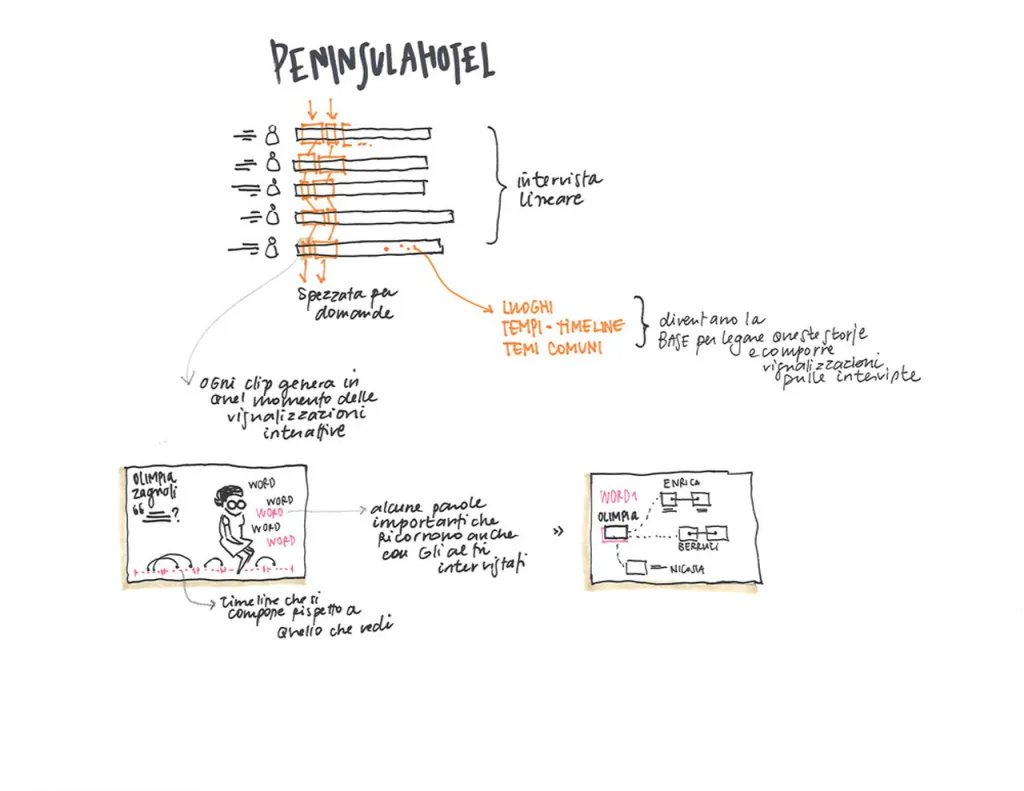 PENINSULAHOTEL
intervista
lineare
Spezzata per
domande
LUOGHI
TEMPI - TIMELINE
TEMI COMUNI
diventano la
BASE per legare queste storie
e comporre
visualizzazioni
sulle interviste
ogni clip genera in
quel momento delle
visualizzazioni
interattive
OLIMPIA
zagnoli
“ ?
WORD
WORD
WORD
WORD
WORD
alcune parole
importanti che
ricorrono anche
con gli altri
intervistati
»
timeline che si
compone rispetto a
quello che vedi
WORD1
OLIMPIA
ENRICA
BERRUCI
NICOSIA